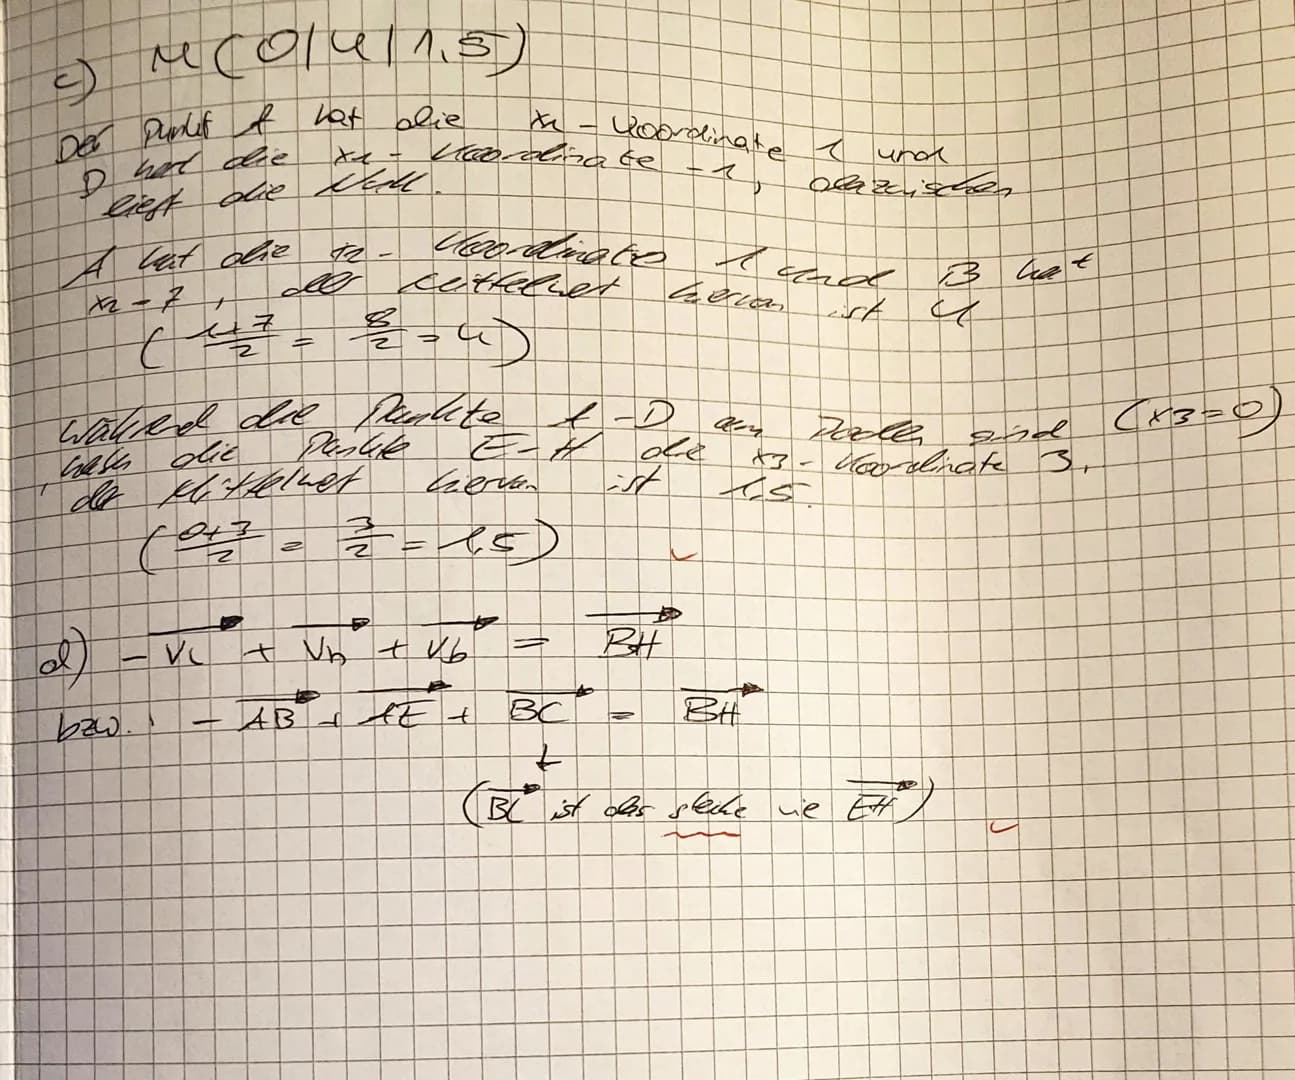 c) M(0|4|1,5)
Der Punkt A hat die x1-Koordinate 1 und
D hat die x1-Koordinate -1, dazwischen
liegt die Null.
A hat die x2-Koordinate 1 und B hat
x2-7, der Mittelwert hiervon ist 4
(1+7/2 = 8/2 = 4)
Während die Punkte A-D am Boden sind (x3=0)
, haben die Punkte E-H die x3-Koordinate 3,
der Mittelwert hiervon ist 1,5.
(0+3/2 = 3/2 = 1,5)
d) -VL + Vh + Vb = BH
bzw.: -AB + AE + BC = BH
(BC ist das gleiche wie EH)